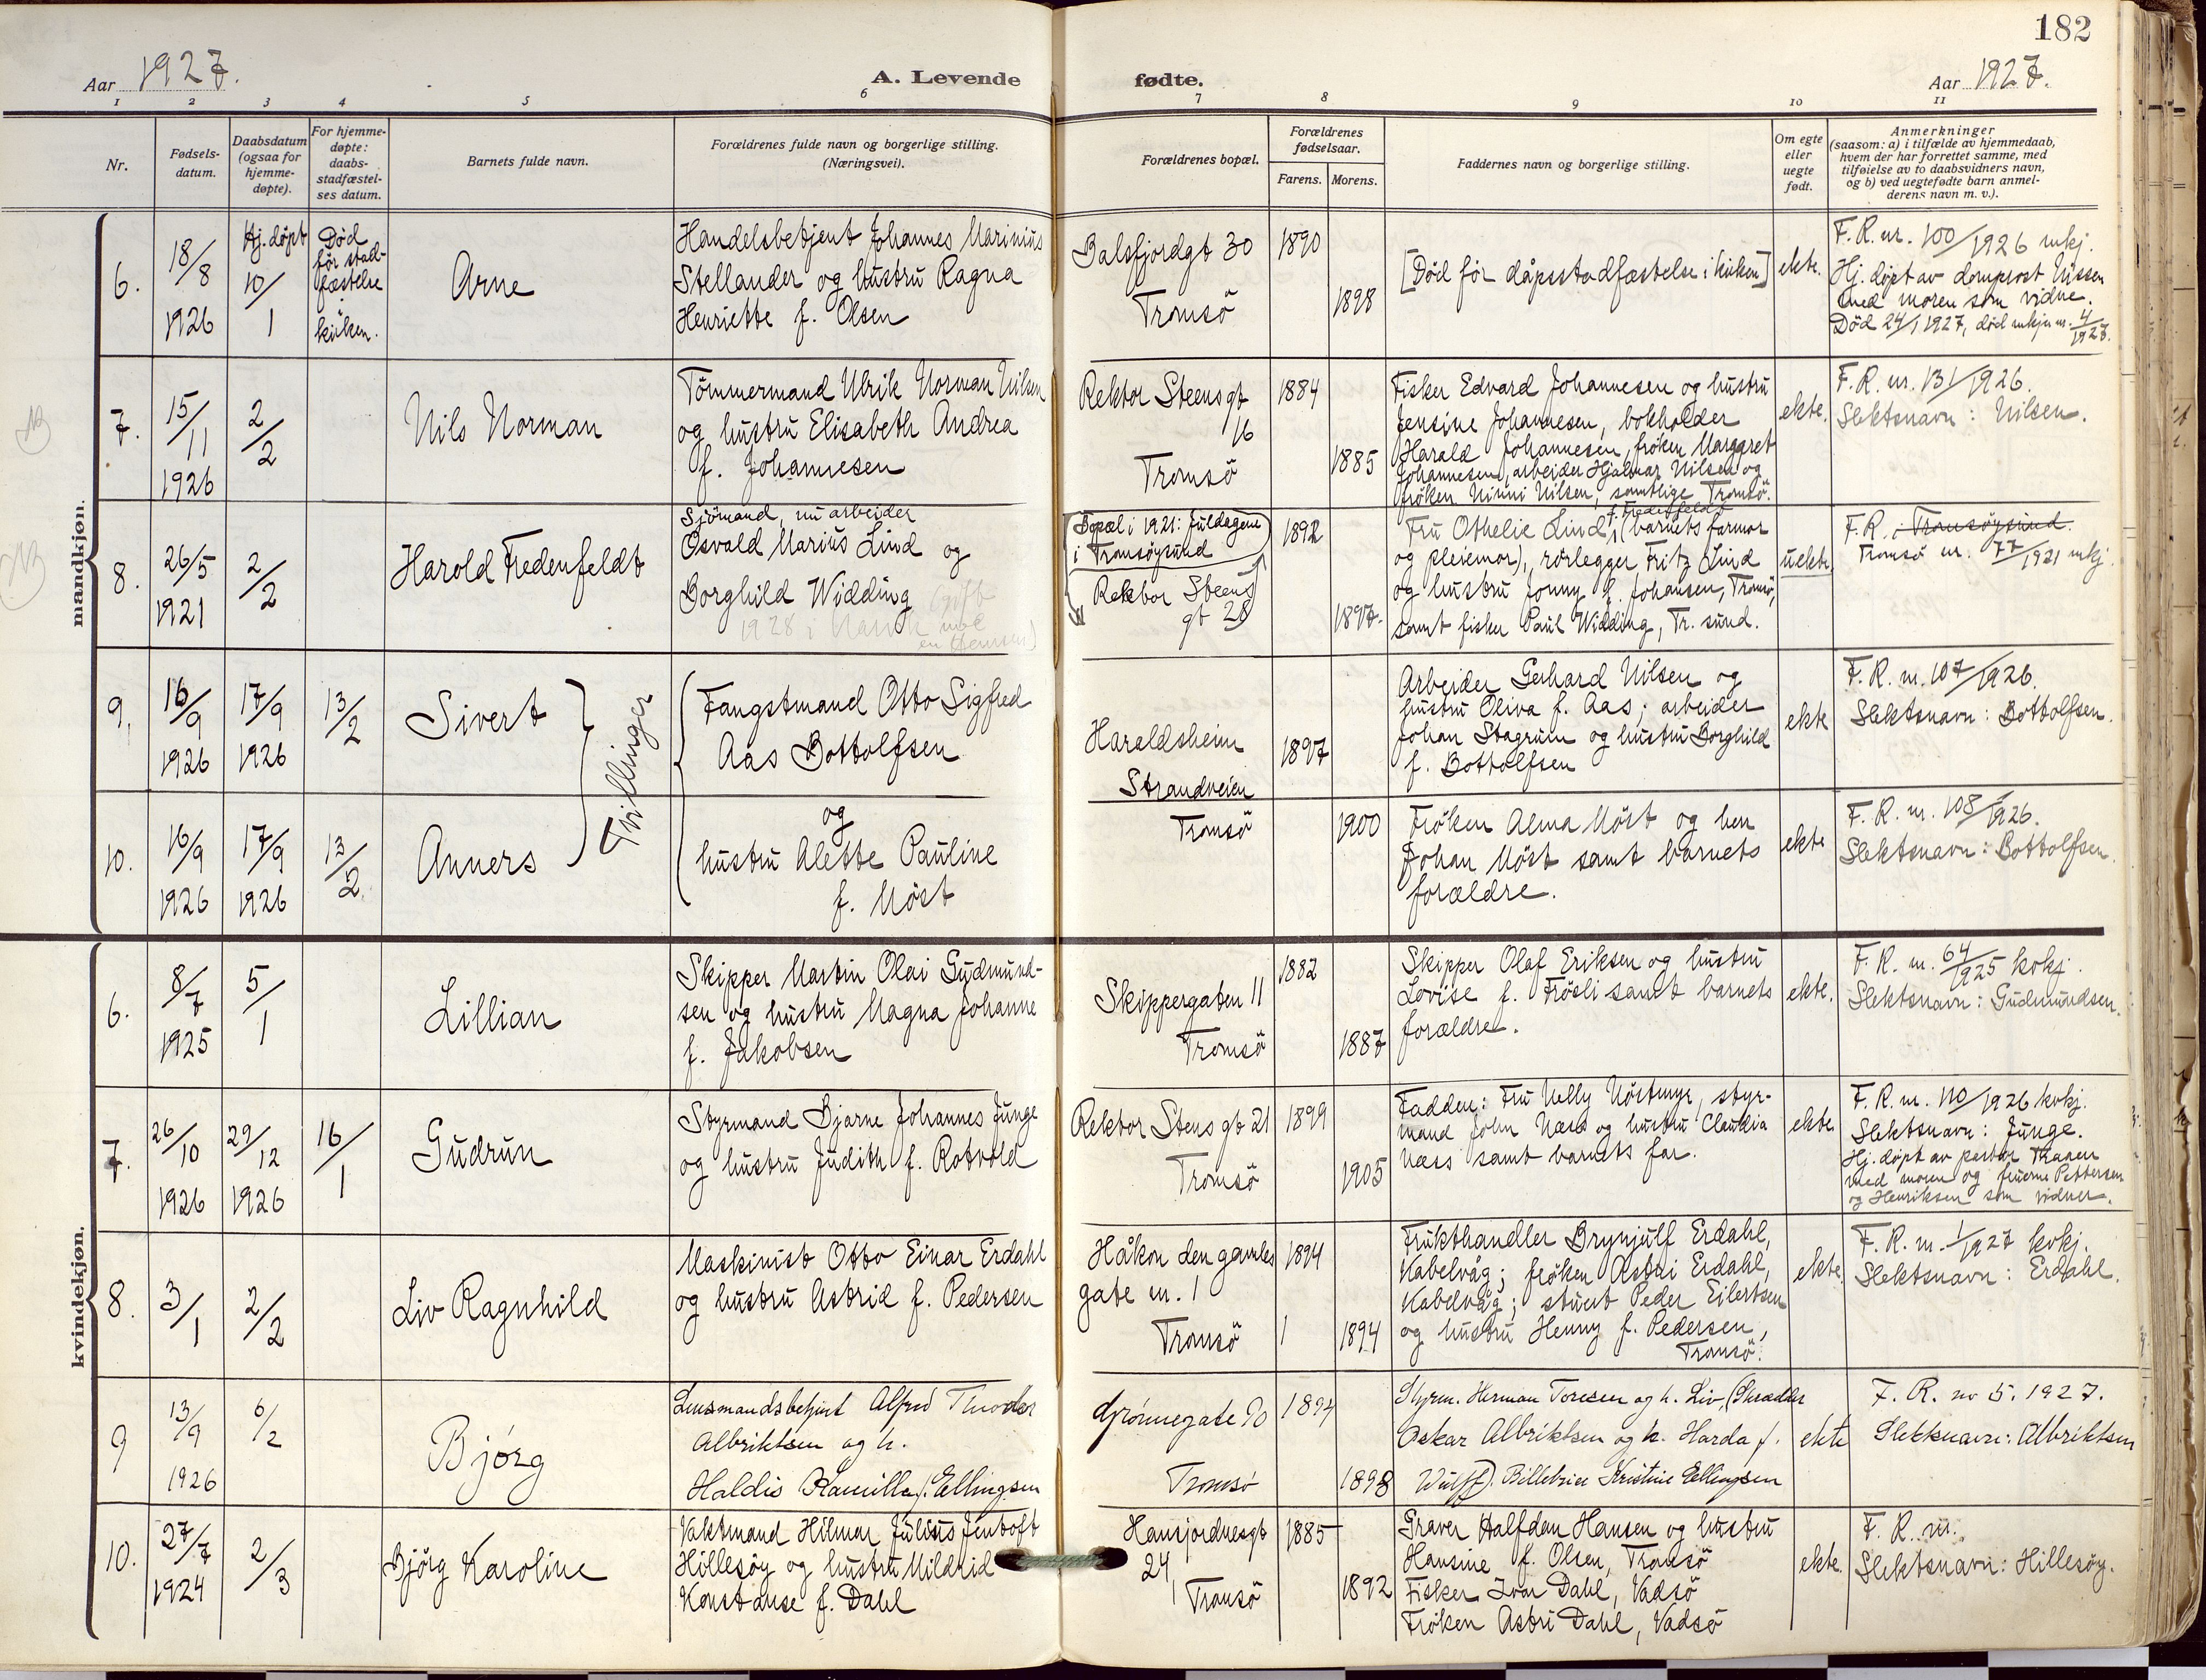 182
Aar 1927.
A. Levende fødte.
Aar 1927.
1 2 3 4 5 6 7 8 9 10 11
Nr.
Fødsels-
datum.
Daabsdatum
(ogsaa for
hjemme-
døpte).
For hjemme-
døpte:
daabs-
stadfæstel-
ses datum.
Barnets fulde navn.
Forældrenes fulde navn og borgerlige stilling.
(Næringsvei).
Forældrenes bopæl.
Forældrenes
fødselsaar.
Farens. Morens.
Faddernes navn og borgerlige stilling.
Om egte
eller
uegte
født.
Anmerkninger
(saasom: a) i tilfælde av hjemmedaab,
hvem der har forrettet samme, med
tilføielse av to daabsvidners navn,
og b) ved uegtefødte barn anmel-
derens navn m. v.).
mandkjøn.
6.
18/8
1926
Hj. døpt
10/1
Død
før stad-
fæstelse
i
kirken.
Arne
Handelsbetjent Johannes Marinius
Stellander og hustru Ragna
Henriette f. Olsen
Balsfjordgt 30
Tromsö
1890
1898
[Død før dåpsstadfæstelse i kirken]
ekte.
F. R. nr. 100/1926 mkj.
Hj. døpt av domprost Nissen
med moren som vidne.
Død 24/1 1927, død mkjn nr. 4/1927.
7.
15/11
1926
2/2
Nils Norman
Tömmermand Ulrik Norman Nilsen
og hustru Elisabeth Andrea
f. Johannesen
Rektor Steensgt
16
Tromsö
1884
1885
Fisker Edvard Johannesen og hustru
Jensine Johannesen, bokholder
Harald Johannesen, frøken Margaret
Johannesen, arbeider Hjalmar Nilsen og
frøken Ninni Nilsen, samtlige Tromsö.
ekte.
F. R. nr. 131/1926.
Slektsnavn: Nilsen.
NB
8.
26/5
1921
2/2
Harold Fredenfeldt
Sjömand, nu arbeider
Osvald Marius Lind og
Borghild Widding (gift
1928 i
en Jensen)
Bopæl i 1921: Juldagene
i Tromsöysund
Rektor Steens
gt 28
1892
1897.
f. Fredenfeldt
Fru Othelie Lind, (barnets farmor
og pleiemor), rørlegger Fritz Lind
og hustru Jonny f. Johansen, Tromsö,
samt fisker Paul Widding, Tr. sund.
uekte.
F. R. i Tromsöysund.
Tromsö nr. 77/1921 mkj.
9.
16/9
1926
17/9
1926
13/2
Sivert
Tvillinger
Fangstmand Otto Sigfred
Aas Bottolfsen
Haraldsheim
Strandveien
Tromsö
1897
Arbeider Gerhard Nilsen og
hustru Oliva f. Aas; arbeider
Johan Stagrum og hustru Borghild
f. Bottolfsen
ekte
F. R. nr. 107/1926.
Slektsnavn: Bottolfsen.
10.
16/9
1926
17/9
1926
13/2
Anners
og
hustru Alette Pauline
f. Möst
1900
Frøken Alma Möst og herr
Johan Möst samt barnets
forældre.
ekte
F. R. nr. 108/1926.
Slektsnavn: Bottolfsen.
kvindekjøn.
6.
8/7
1925
5/1
Lillian
Skipper Martin Olai Gudmund-
sen og hustru Magna Johanne
f. Jakobsen
Skippergaten 11
Tromsö
1882
1887
Skipper Olaf Eriksen og hustru
Lovise f. Frösli samt barnets
forældre.
ekte.
F. R. nr. 64/1925 kvkj.
Slektsnavn: Gudmundsen.
7.
26/10
1926
29/12
1926
16/1
Gudrun
Styrmand Bjarne Johannes Junge
og hustru Judith f. Rotvold
Rektor Stens gt 21
Tromsö
1899
1905
Faddere: Fru Nelly Nöstmyr, styr-
mand John Næss og hustru Claudia
Næss samt barnets far.
ekte
F. R. nr. 110/1926 kvkj.
Slektsnavn: Junge.
Hj. døpt av pastor
med moren og fruerne Pettersen
og Henriksen som vidner.
8.
3/1
2/2
Liv Ragnhild
Maskinist Otto Einar Erdahl
og hustru Astrid f. Pedersen
Håkon den gamles
gate nr. 1
Tromsö
1894
1894
Frukthandler Brynjulf Erdahl,
Kabelvåg; frøken Astri Erdahl,
Kabelvåg; stuert Peder Eilertsen
og hustru Henny f. Pedersen,
Tromsö.
ekte
F. R. nr. 1/1927 kvkj.
Slektsnavn: Erdahl.
9
13/9
1926
6/2
Bjørg
Lensmandsbetjent Alfred Theodor
Albriktsen og h.
Haldis Kamilla f. Ellingsen
Grønnegate 90
Tromsø
1894
1898
Styrm. Herman Toresen og h. Liv, (Skrædder
Oskar Albriktsen og h. Harda f.
Wulff). Billetrice Kristine Ellingsen
ekte
F. R. no 5. 1927.
Slektsnavn: Albriktsen
10.
27/7
1924
2/3
Bjørg Karoline
Vaktmand Hilmar Julius Jentoft
Hillesöy og hustru Mildrid
Konstanse f. Dahl
Hansjordnesgt
24,
Tromsö
1885
1892
Graver Halfdan Hansen og hustru
Hansine f. Olsen, Tromsö
Fisker Ivar Dahl, Vadsö
Frøken Astri Dahl, Vadsö
ekte.
F. R. nr.
Slektsnavn: Hillesöy.